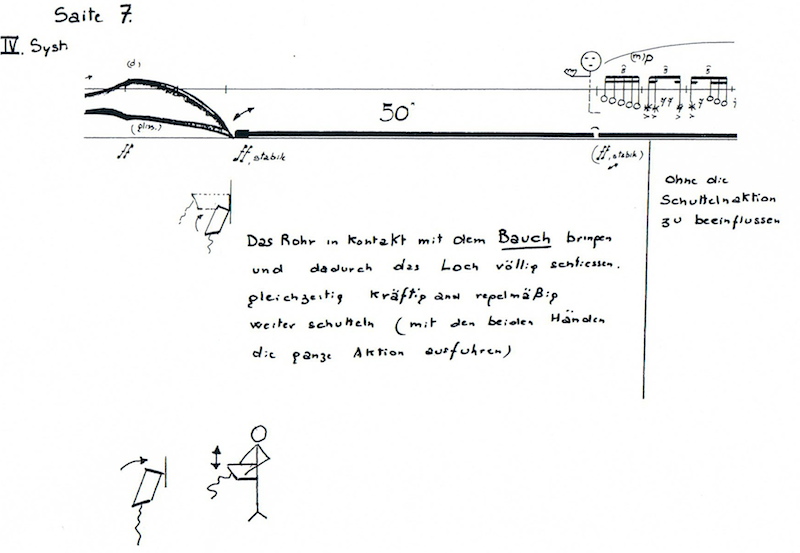 Saite 7.
IV. Syst.
(d)
(m)p
3 3 3
50"
(gliss.)
ff ff, stabik (ff, stabik)
Ohne die
Schuttelnaktion
zu beeinflussen
Das Rohr in Kontakt mit dem Bauch bringen
und dadurch das Loch völlig schliessen.
gleichzeitig kräftig and regelmäßig
weiter schutteln (mit den beiden Händen
die ganze Aktion ausfuhren)